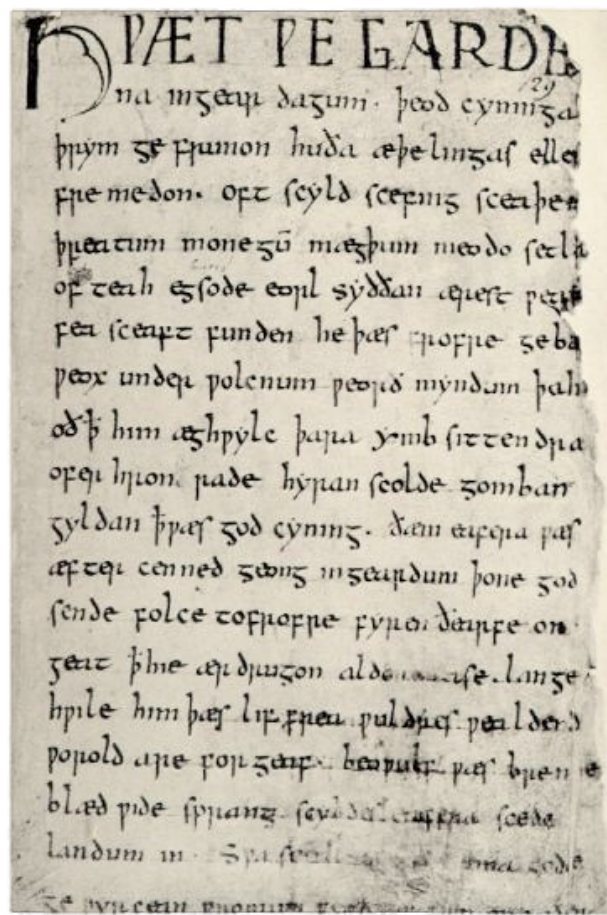 HǷÆT ǷE GARDE
129
na ingear dagum. þeod cyninga
þrym ge frunon huða æþelingas elle
fremedon. oft scyld scefing sceaþe
þreatum monegū mægþum meodo setla
of teah egsode eorl syððan ærest ƿear
fea sceaft funden he þæs frofre geba
ƿeox under ƿolcnum ƿeorð myndum þah
oð ꝥ him æghƿylc þara ymb sittendra
ofer hron rade hyran scolde gomban
gyldan ꝥ ƿæs god cyning. ðæm eafera ƿæs
æfter cenned geong ingeardum þone god
sende folce tofrofre fyren ðearfe on
geat ꝥ hie ær drugon aldor ase. lange
hƿile him þæs lif frea ƿuldres ƿealdend
ƿorold are for geaf. beoƿulf ƿæs breme
blæd ƿide sprang scyldes eafera scede
landum in. Sƿa sceal ma gode
ge ƿyrcean fromum